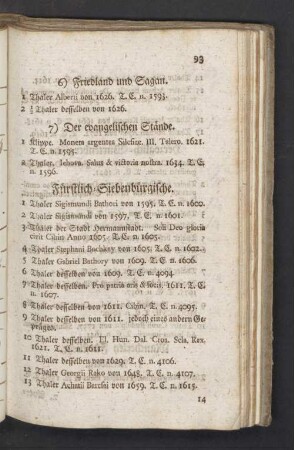 93
6) Friedland und Sagan.
1 Thaler Alberti von 1626. T. C. n. 1593.
2 ½ Thaler desselben von 1626.
7) Der evangelischen Stände.
1 Klippe. Moneta argentea Silesiae. III. Talero. 1621.
T. C. n. 1595.
2 Thaler. Jehova. Salus & victoria nostra. 1634. T. C.
n. 1596.
Fürstlich Siebenbürgische.
1 Thaler Sigismundi Bathori von 1595. T. C. n. 1600.
2 Thaler Sigismundi von 1597. T. C. n. 1601.
3 Thaler der Stadt Hermannstadt. Soli Deo gloria
Cibin Anno 1605. T. C. n. 1603.
4 Thaler Stephani Bochkay von 1605. T. C. n. 1602.
5 Thaler Gabriel Bathory von 1609. T. C. n. 1606.
6 Thaler desselben von 1609. T. C. n. 4094.
7 Thaler desselben. Pro patria aris & focis. 1611. T. C.
n. 1607.
8 Thaler desselben von 1611. Cibin. T. C. n. 4095.
9 Thaler desselben von 1611. jedoch eines andern Ge-
präges.
10 Thaler desselben. El. Hun. Dal. Croa. Scla. Rex.
1621. T. C. n. 1611.
11 Thaler desselben von 1629. T. C. n. 4106.
12 Thaler Georgii Rako von 1648. T. C. n. 4107.
13 Thaler Achatii Bartsai von 1659. T. C. n. 1615.
14